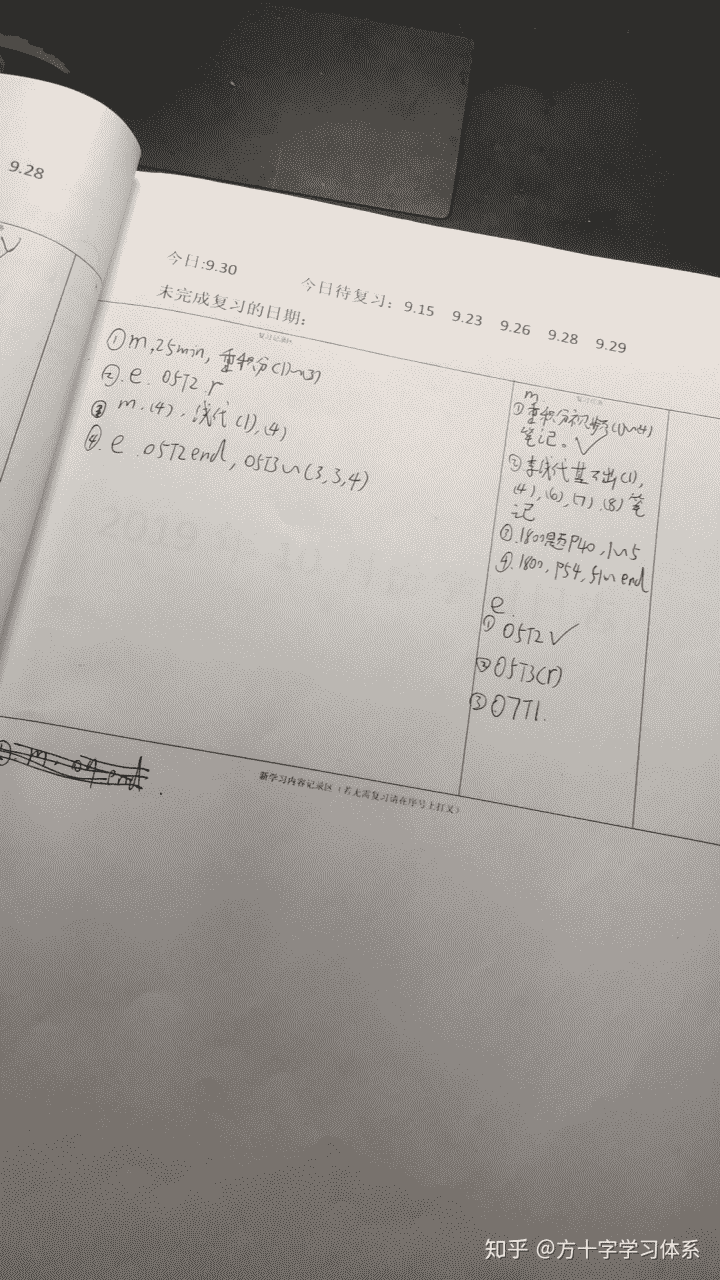 9.28
今日:9.30
今日待复习: 9.15 9.23 9.26 9.28 9.29
未完成复习的日期:
复习记录区
① m, 25min, 重积分(1)~(3)
②. e. 05T2 r
③ m. (4). 线代(1),(4)
④. e. 05T2 end, 05T3~(3,3,4)
复习任务
m
①重积分视频(1)~(4)
笔记。✓
②李线代基不出(1),
(4),(6),(7),(8)笔
记
③.1800题P40,1~5
④.1800,P54,51~end
e.
① 05T2✓
②05T3(r)
③07T1.
新学习内容记录区(若无需复习请在序号上打叉)
知乎 @方十字学习体系